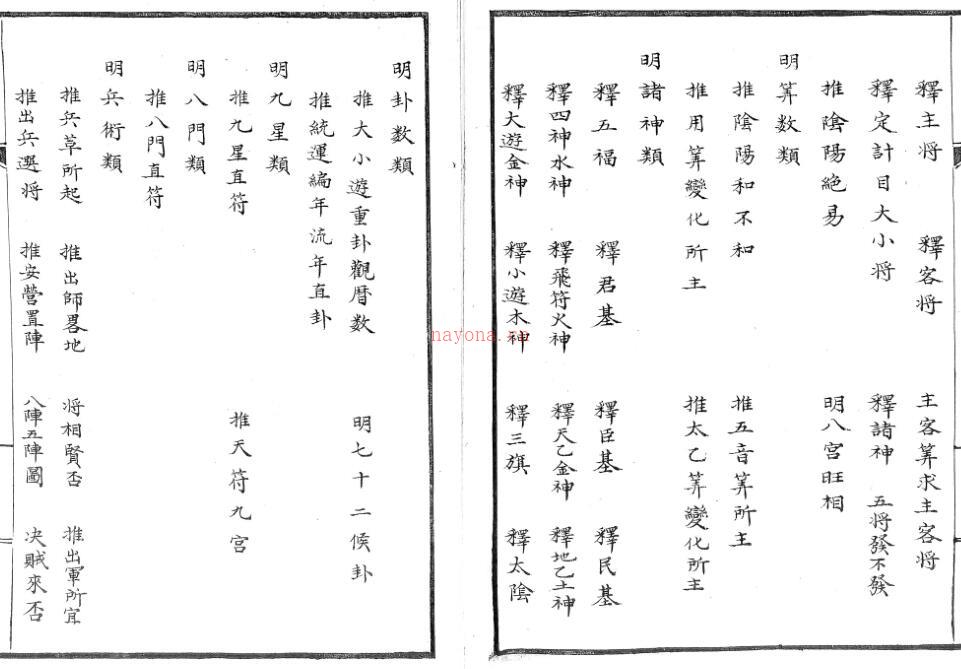 釋主将 釋客将 主客筭求主客将
釋定計目大小将 釋諸神 五将發不發
推陰陽絶易 明八宫旺相
明筭数類
推陰陽和不和 推五音筭所主
推用筭變化所主 推太乙筭變化所主
明諸神類
釋五福 釋君基 釋臣基 釋民基
釋四神水神 釋飛符火神 釋天乙金神 釋地乙土神
釋大遊金神 釋小遊木神 釋三旗 釋太陰
明卦数類
推大小遊重卦觀暦数 明七十二候卦
推統運編年流年直卦
明九星類
推九星直符 推天符九宫
明八門類
推八門直符
明兵術類
推兵草所起 推出師畧地 将相賢否 推出軍所宜
推出兵選将 推安營置陣 八陣五陣圖 决賊來否